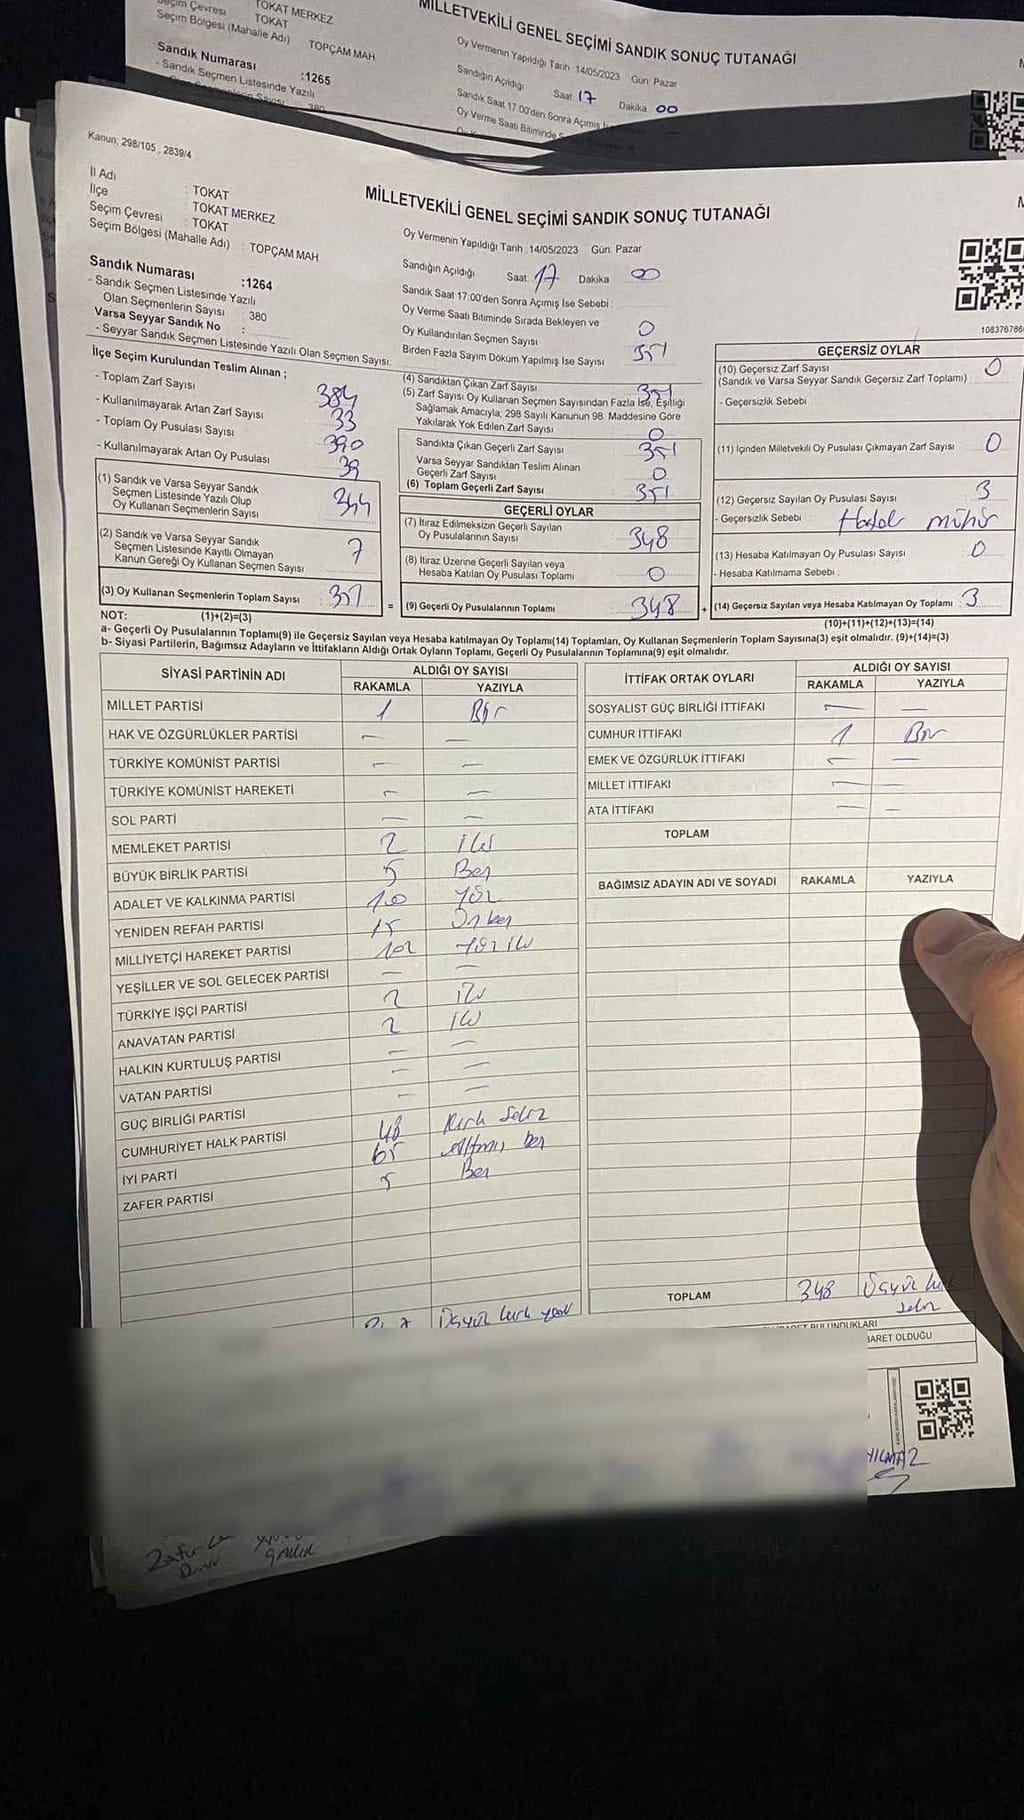 Seçim Çevresi TOKAT MERKEZ
Seçim Bölgesi (Mahalle Adı) TOKAT
TOPÇAM MAH
Sandık Numarası :1265
- Sandık Seçmen Listesinde Yazılı
380
MİLLETVEKİLİ GENEL SEÇİMİ SANDIK SONUÇ TUTANAĞI
Oy Vermenin Yapıldığı Tarih : 14/05/2023 Gün: Pazar
Sandığın Açıldığı Saat: 17 Dakika 00
Sandık Saat 17:00'den Sonra Açılmış
Oy Verme Saati Bitiminde
Kanun; 298/105 , 2839/4
İl Adı : TOKAT
İlçe : TOKAT MERKEZ
Seçim Çevresi : TOKAT
Seçim Bölgesi (Mahalle Adı) : TOPÇAM MAH
MİLLETVEKİLİ GENEL SEÇİMİ SANDIK SONUÇ TUTANAĞI
Oy Vermenin Yapıldığı Tarih : 14/05/2023 Gün: Pazar
Sandığın Açıldığı Saat: 17 Dakika 00
Sandık Saat 17:00'den Sonra Açılmış İse Sebebi :
Oy Verme Saati Bitiminde Sırada Bekleyen ve
Oy Kullandırılan Seçmen Sayısı 0
Birden Fazla Sayım Döküm Yapılmış İse Sayısı 351
Sandık Numarası :1264
- Sandık Seçmen Listesinde Yazılı
Olan Seçmenlerin Sayısı : 380
Varsa Seyyar Sandık No :
- Seyyar Sandık Seçmen Listesinde Yazılı Olan Seçmen Sayısı:
İlçe Seçim Kurulundan Teslim Alınan ;
- Toplam Zarf Sayısı 384
- Kullanılmayarak Artan Zarf Sayısı 33
- Toplam Oy Pusulası Sayısı 390
- Kullanılmayarak Artan Oy Pusulası 39
(1) Sandık ve Varsa Seyyar Sandık
Seçmen Listesinde Yazılı Olup
Oy Kullanan Seçmenlerin Sayısı 344
(2) Sandık ve Varsa Seyyar Sandık
Seçmen Listesinde Kayıtlı Olmayan
Kanun Gereği Oy Kullanan Seçmen Sayısı 7
(3) Oy Kullanan Seçmenlerin Toplam Sayısı 351
(4) Sandıktan Çıkan Zarf Sayısı 351
(5) Zarf Sayısı Oy Kullanan Seçmen Sayısından Fazla İse, Eşitliği
Sağlamak Amacıyla; 298 Sayılı Kanunun 98. Maddesine Göre
Yakılarak Yok Edilen Zarf Sayısı 0
Sandıkta Çıkan Geçerli Zarf Sayısı 351
Varsa Seyyar Sandıktan Teslim Alınan
Geçerli Zarf Sayısı 0
(6) Toplam Geçerli Zarf Sayısı 351
GEÇERLİ OYLAR
(7) İtiraz Edilmeksizin Geçerli Sayılan
Oy Pusulalarının Sayısı 348
(8) İtiraz Üzerine Geçerli Sayılan veya
Hesaba Katılan Oy Pusulası Toplamı 0
= (9) Geçerli Oy Pusulalarının Toplamı 348
108376786
GEÇERSİZ OYLAR
(10) Geçersiz Zarf Sayısı 0
(Sandık ve Varsa Seyyar Sandık Geçersiz Zarf Toplamı)
- Geçersizlik Sebebi :
(11) İçinden Milletvekili Oy Pusulası Çıkmayan Zarf Sayısı 0
(12) Geçersiz Sayılan Oy Pusulası Sayısı 3
- Geçersizlik Sebebi : Hatalı mühür
(13) Hesaba Katılmayan Oy Pusulası Sayısı 0
- Hesaba Katılmama Sebebi :
+ (14) Geçersiz Sayılan veya Hesaba Katılmayan Oy Toplamı : 3
NOT: (1)+(2)=(3)
(10)+(11)+(12)+(13)=(14)
a- Geçerli Oy Pusulalarının Toplamı(9) ile Geçersiz Sayılan veya Hesaba katılmayan Oy Toplamı(14) Toplamları, Oy Kullanan Seçmenlerin Toplam Sayısına(3) eşit olmalıdır. (9)+(14)=(3)
b- Siyasi Partilerin, Bağımsız Adayların ve İttifakların Aldığı Ortak Oyların Toplamı, Geçerli Oy Pusulalarının Toplamına(9) eşit olmalıdır.
SİYASİ PARTİNİN ADI ALDIĞI OY SAYISI
RAKAMLA YAZIYLA
MİLLET PARTİSİ 1 Bir
HAK VE ÖZGÜRLÜKLER PARTİSİ — —
TÜRKİYE KOMÜNİST PARTİSİ — —
TÜRKİYE KOMÜNİST HAREKETİ — —
SOL PARTİ — —
MEMLEKET PARTİSİ 2 iki
BÜYÜK BİRLİK PARTİSİ 5 Beş
ADALET VE KALKINMA PARTİSİ 100 Yüz
YENİDEN REFAH PARTİSİ 15 Onbeş
MİLLİYETÇİ HAREKET PARTİSİ 102 Yüz iki
YEŞİLLER VE SOL GELECEK PARTİSİ — —
TÜRKİYE İŞÇİ PARTİSİ 2 iki
ANAVATAN PARTİSİ 2 iki
HALKIN KURTULUŞ PARTİSİ — —
VATAN PARTİSİ — —
GÜÇ BİRLİĞİ PARTİSİ — —
CUMHURİYET HALK PARTİSİ 48 Kırk Sekiz
İYİ PARTİ 65 Altmış beş
ZAFER PARTİSİ 5 Beş
Üçyüz kırk yedi
İTTİFAK ORTAK OYLARI ALDIĞI OY SAYISI
RAKAMLA YAZIYLA
SOSYALİST GÜÇ BİRLİĞİ İTTİFAKI — —
CUMHUR İTTİFAKI 1 Bir
EMEK VE ÖZGÜRLÜK İTTİFAKI — —
MİLLET İTTİFAKI — —
ATA İTTİFAKI — —
TOPLAM
BAĞIMSIZ ADAYIN ADI VE SOYADI RAKAMLA YAZIYLA
TOPLAM 348 Üçyüz kırk
sekiz
BULUNDUKLARI
BARET OLDUĞU
YILMAZ
Zafer